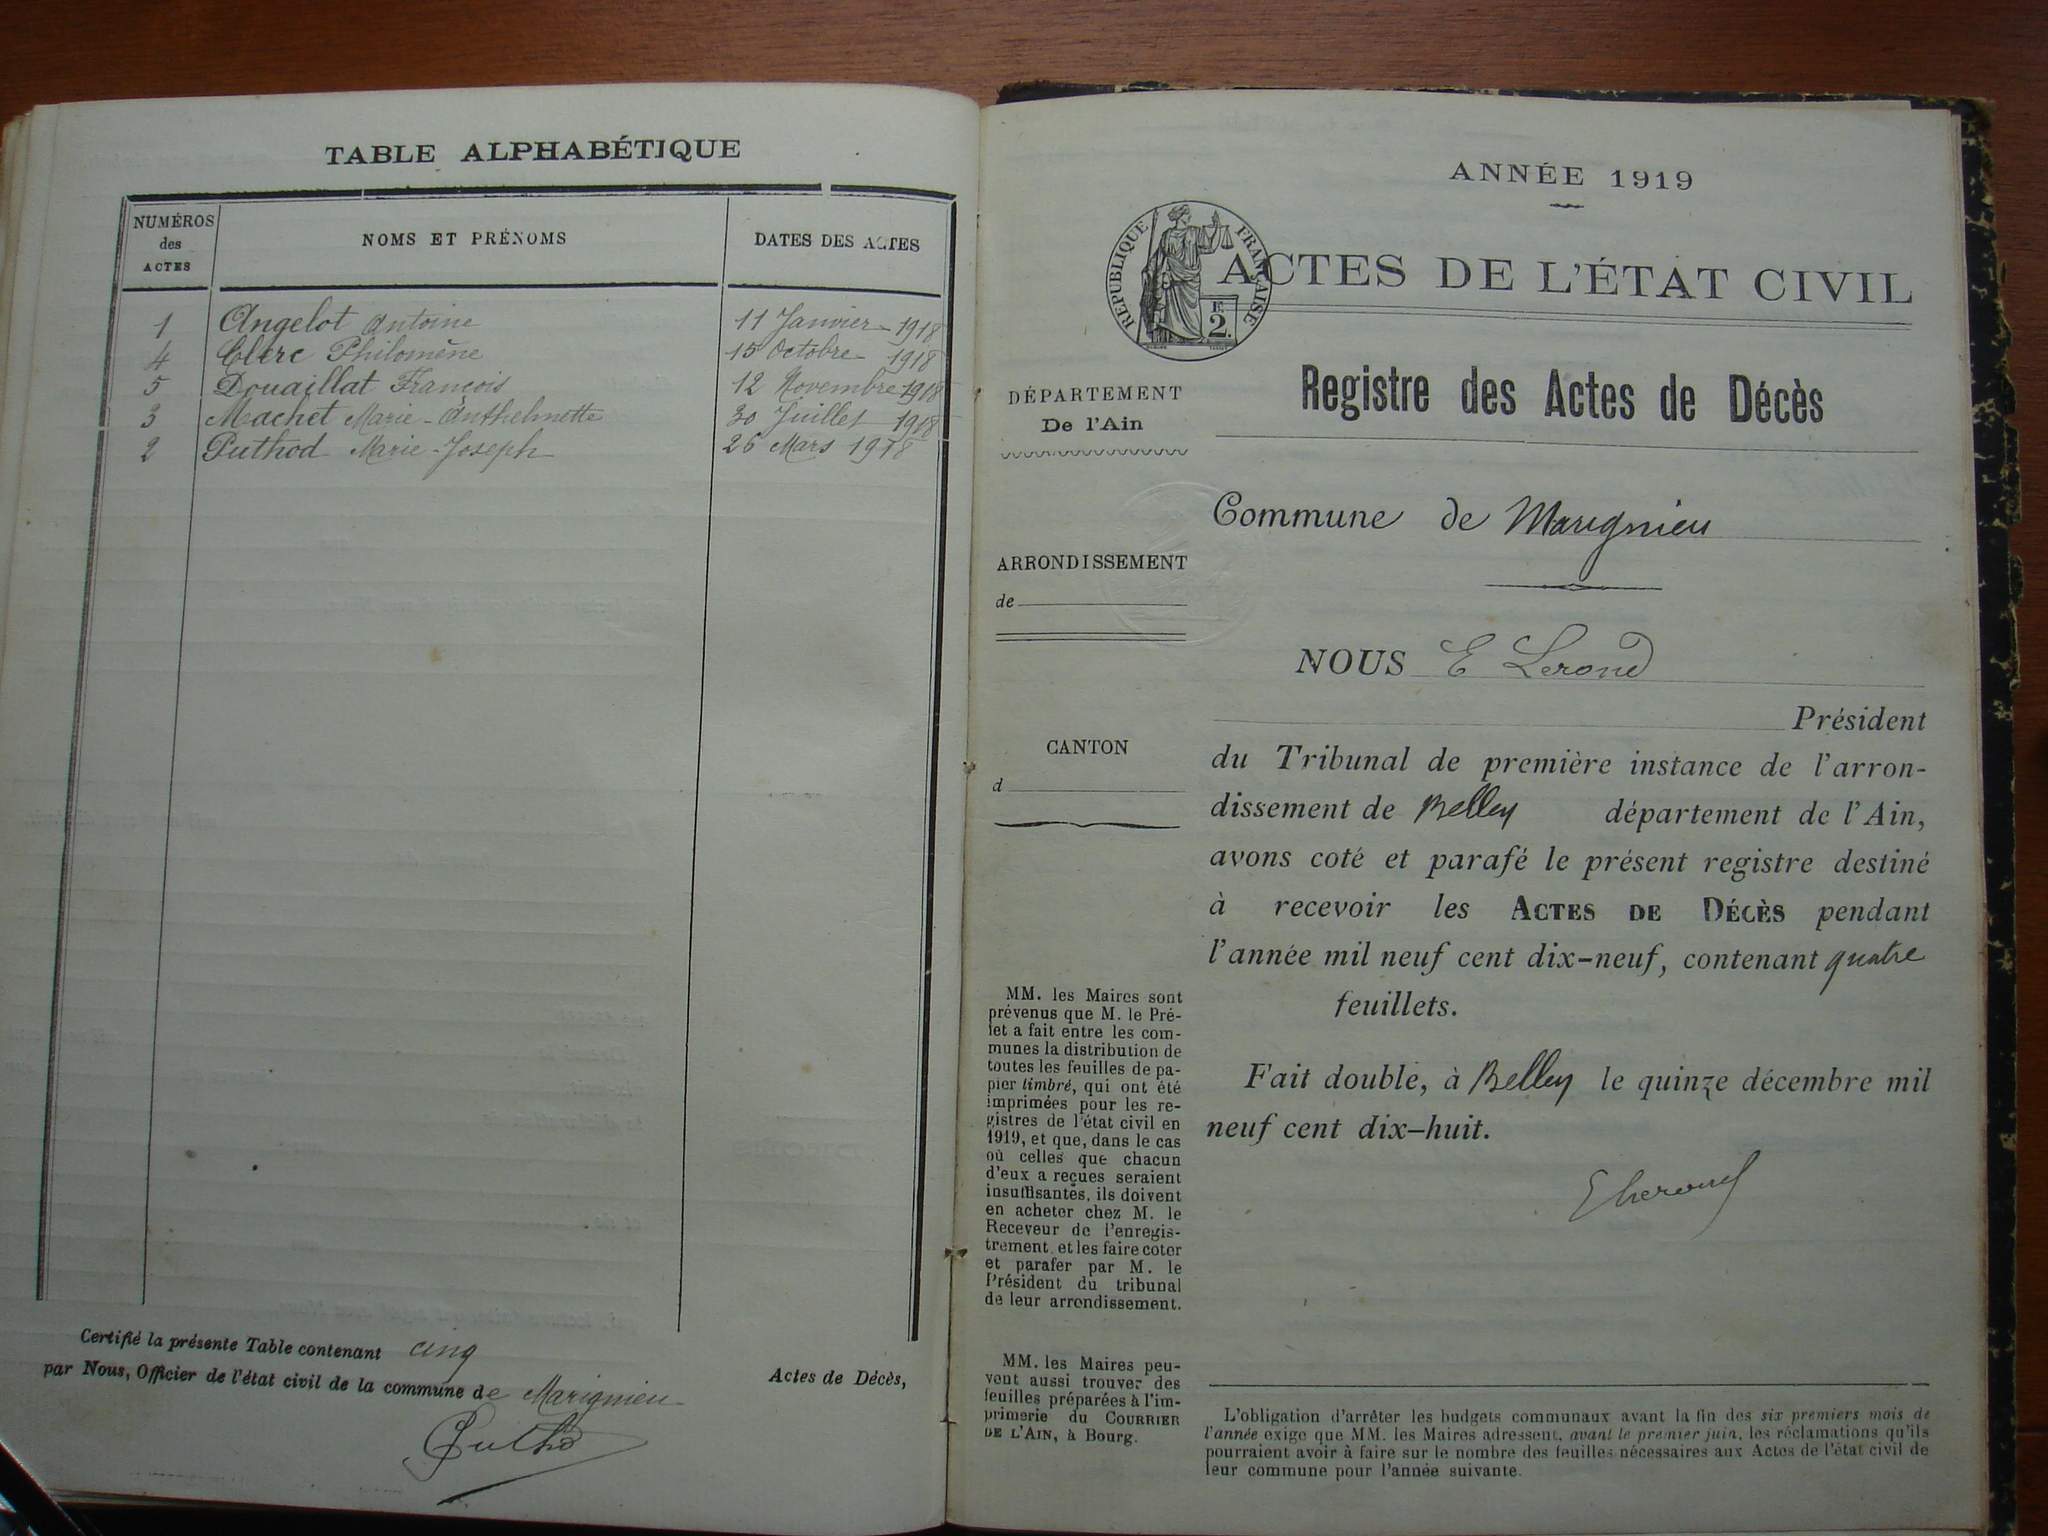 TABLE ALPHABÉTIQUE
NUMÉROS des ACTES
NOMS ET PRÉNOMS
DATES DES ACTES
1 Angelot Antoine 11 Janvier 1918
4 Clerc Philomène 15 Octobre 1918
5 Douaillat François 12 Novembre 1918
3 Machet Marie-Anthelmette 30 Juillet 1918
2 Puthod Marie-Joseph 26 Mars 1918
Certifié la présente Table contenant cinq
Actes de Décès,
par Nous, Officier de l'état civil de la commune de Marignieu
Puthod
ANNÉE 1919
RÉPUBLIQUE FRANÇAISE
F. 2.
ACTES DE L'ÉTAT CIVIL
Registre des Actes de Décès
DÉPARTEMENT
De l'Ain
ARRONDISSEMENT
de
CANTON
d
MM. les Maires sont
prévenus que M. le Pré-
fet a fait entre les com-
munes la distribution de
toutes les feuilles de pa-
pier timbré, qui ont été
imprimées pour les re-
gistres de l'état civil en
1919, et que, dans le cas
où celles que chacun
d'eux a reçues seraient
insuffisantes, ils doivent
en acheter chez M. le
Receveur de l'enregis-
trement et les faire coter
et parafer par M. le
Président du tribunal
de leur arrondissement.
MM. les Maires peu-
vent aussi trouver des
feuilles préparées à l'im-
primerie du COURRIER
DE L'AIN, à Bourg.
Commune de Marignieu
NOUS E Lerond
Président
du Tribunal de première instance de l'arron-
dissement de Belley département de l'Ain,
avons coté et parafé le présent registre destiné
à recevoir les ACTES DE DÉCÈS pendant
l'année mil neuf cent dix-neuf, contenant quatre
feuillets.
Fait double, à Belley le quinze décembre mil
neuf cent dix-huit.
E Lerond
L'obligation d'arrêter les budgets communaux avant la fin des six premiers mois de
l'année exige que MM. les Maires adressent, avant le premier juin, les réclamations qu'ils
pourraient avoir à faire sur le nombre des feuilles nécessaires aux Actes de l'état civil de
leur commune pour l'année suivante.